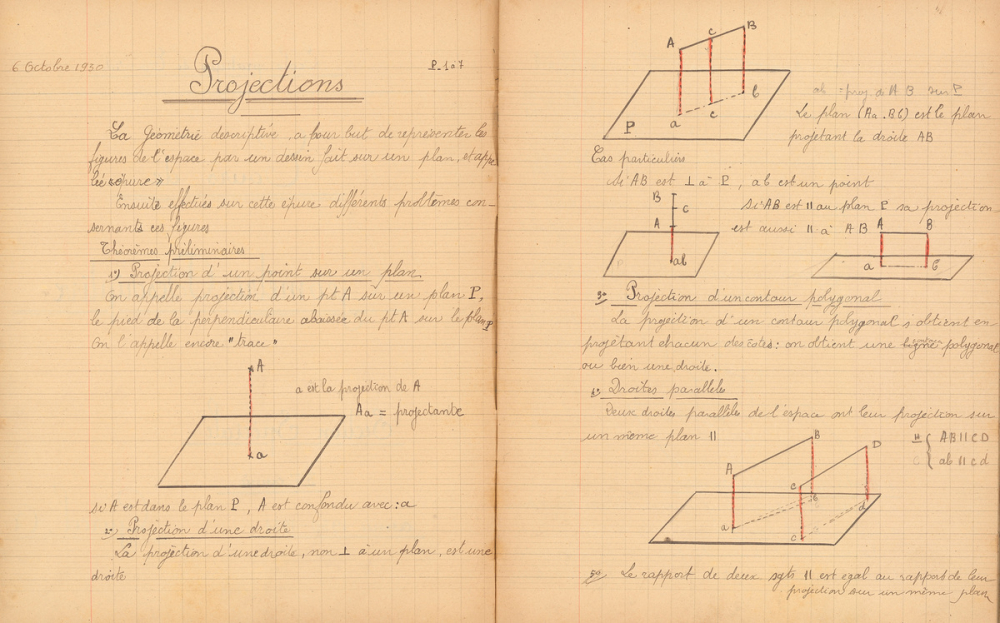 6 Octobre 1930
P. 107
Projections
La Géométrie descriptive, a pour but de représenter les
figures de l'espace par un dessin fait sur un plan, et appe
lée «épure»
Ensuite effectués sur cette épure différents problèmes con-
sernants ces figures
Théorèmes préliminaires
1°) Projection d'un point sur un plan.
On appelle projection d'un pt A sur un plan P,
le pied de la perpendiculaire abaissée du pt A sur le plan P
On l'appelle encore "trace"
A
a est la projection de A
Aa = projetante
a
si A est dans le plan P, A est confondu avec : a
2°) Projection d'une droite
La projection d'une droite, non ⊥ à un plan, est une
droite
A c B
P a c b
ab = proj. de AB sur P
Le plan (Aa.Bb) est le plan
projetant la droite AB
Cas particuliers
Si AB est ⊥ à P, ab est un point
B
C
A
P ab
Si AB est || au plan P sa projection
est aussi || à AB
A B
a b
3° Projection d'un contour polygonal
La projection d'un contour polygonal s'obtient en
projetant chacun des côtés : on obtient une ligne polygonal
ou bien une droite.
4°) Droites parallèles
Deux droites parallèles de l'espace ont leur projection sur
un même plan ||
H { AB || CD
C { ab || cd
A B C D
a b c d
5°) Le rapport de deux sgts || est egal au rapport de leur
projection sur un même plan